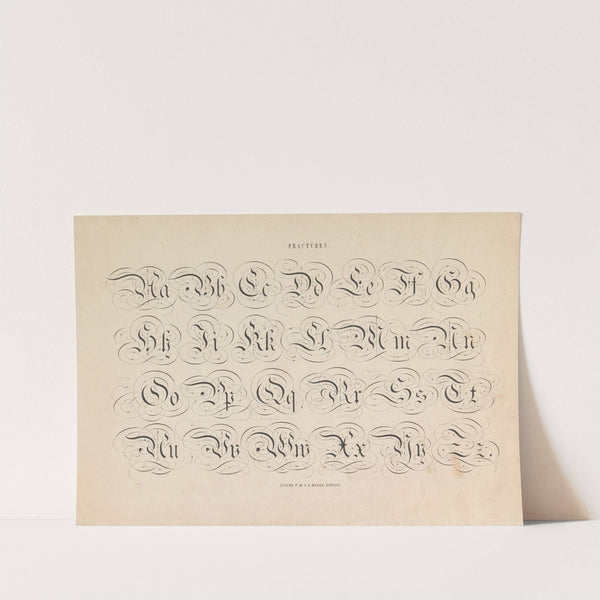 FRACTUREN.
Aa Bb Cc Dd Ee Ff Gg
Hh Ii Kk Ll Mm Nn
Oo Pp Qq Rr Ss Tt
Uu Vv Ww Xx Yy Zz.